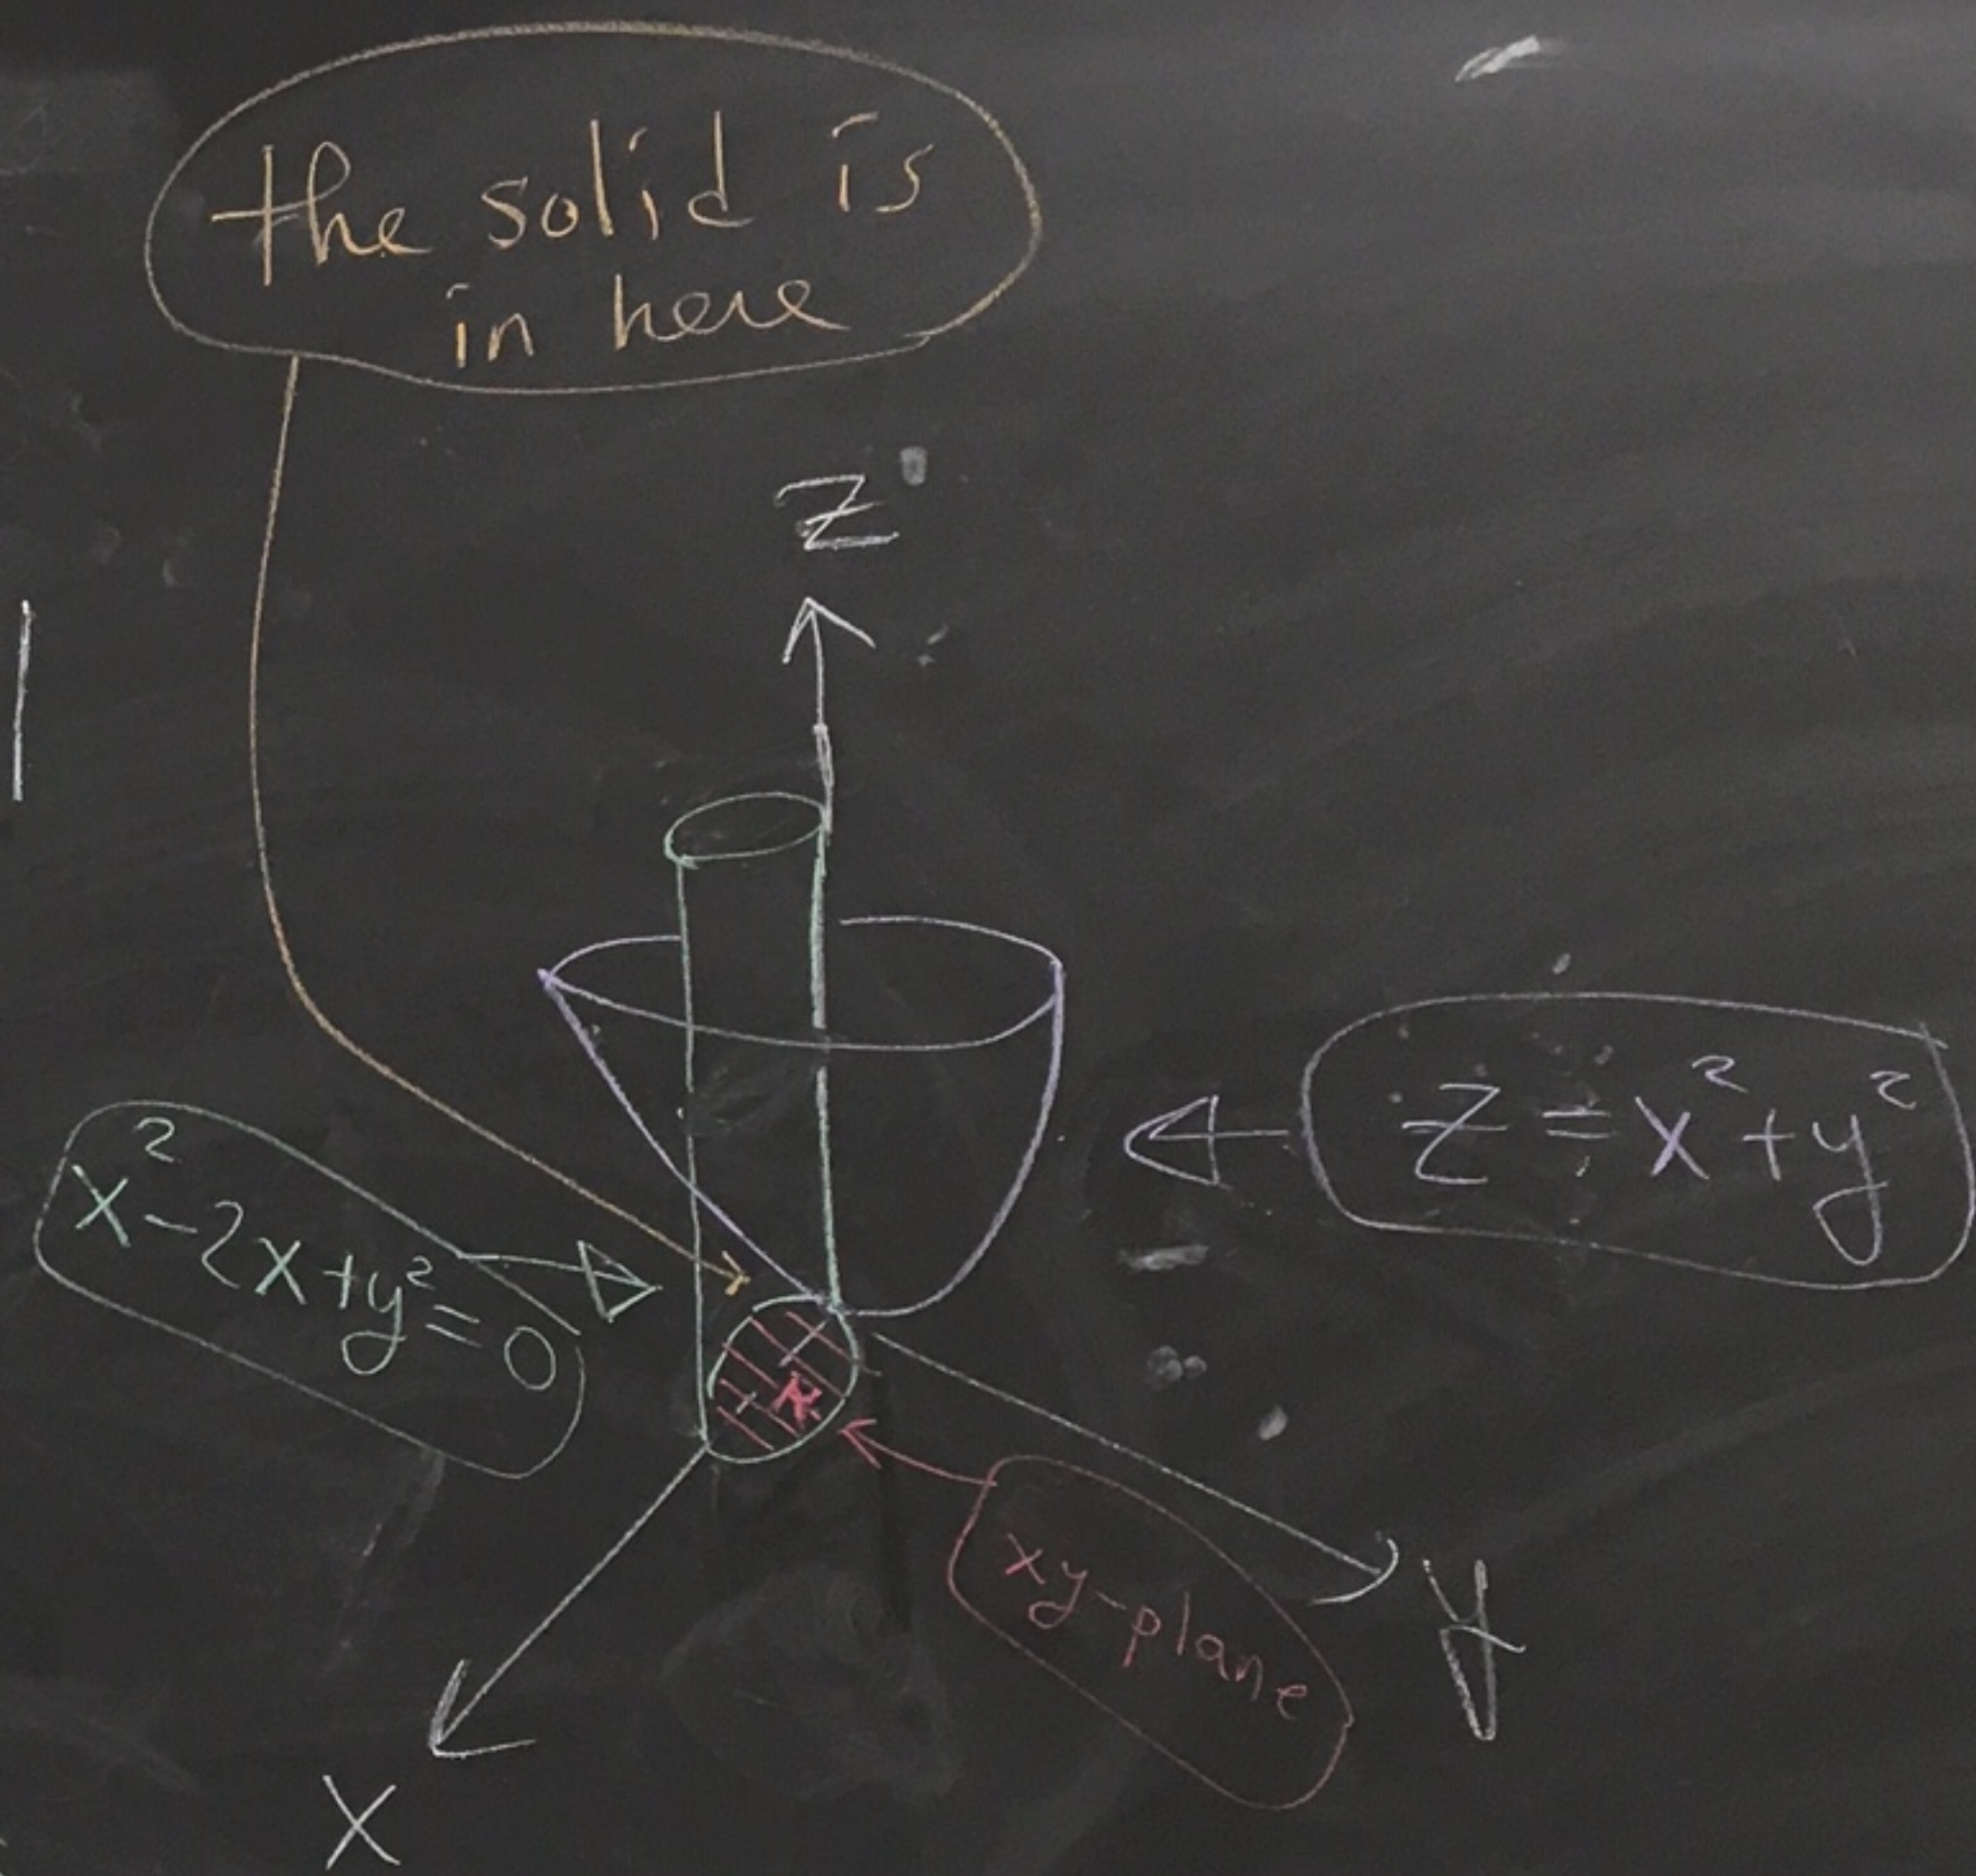 the solid is
in here
z
z = x² + y²
x² - 2x + y² = 0
R
xy-plane
y
x